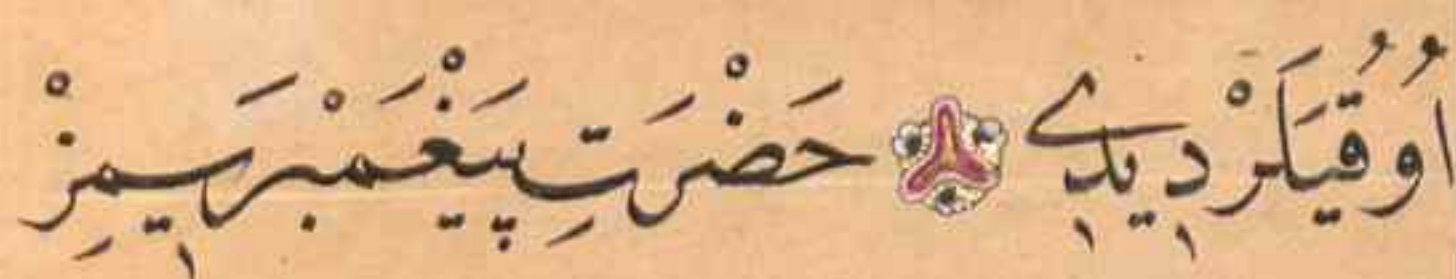 اُوقُيَلَرْ دٖيدٖي ۞ حَضْرَتِ پَيْغَمْبَرٖيمِزْ